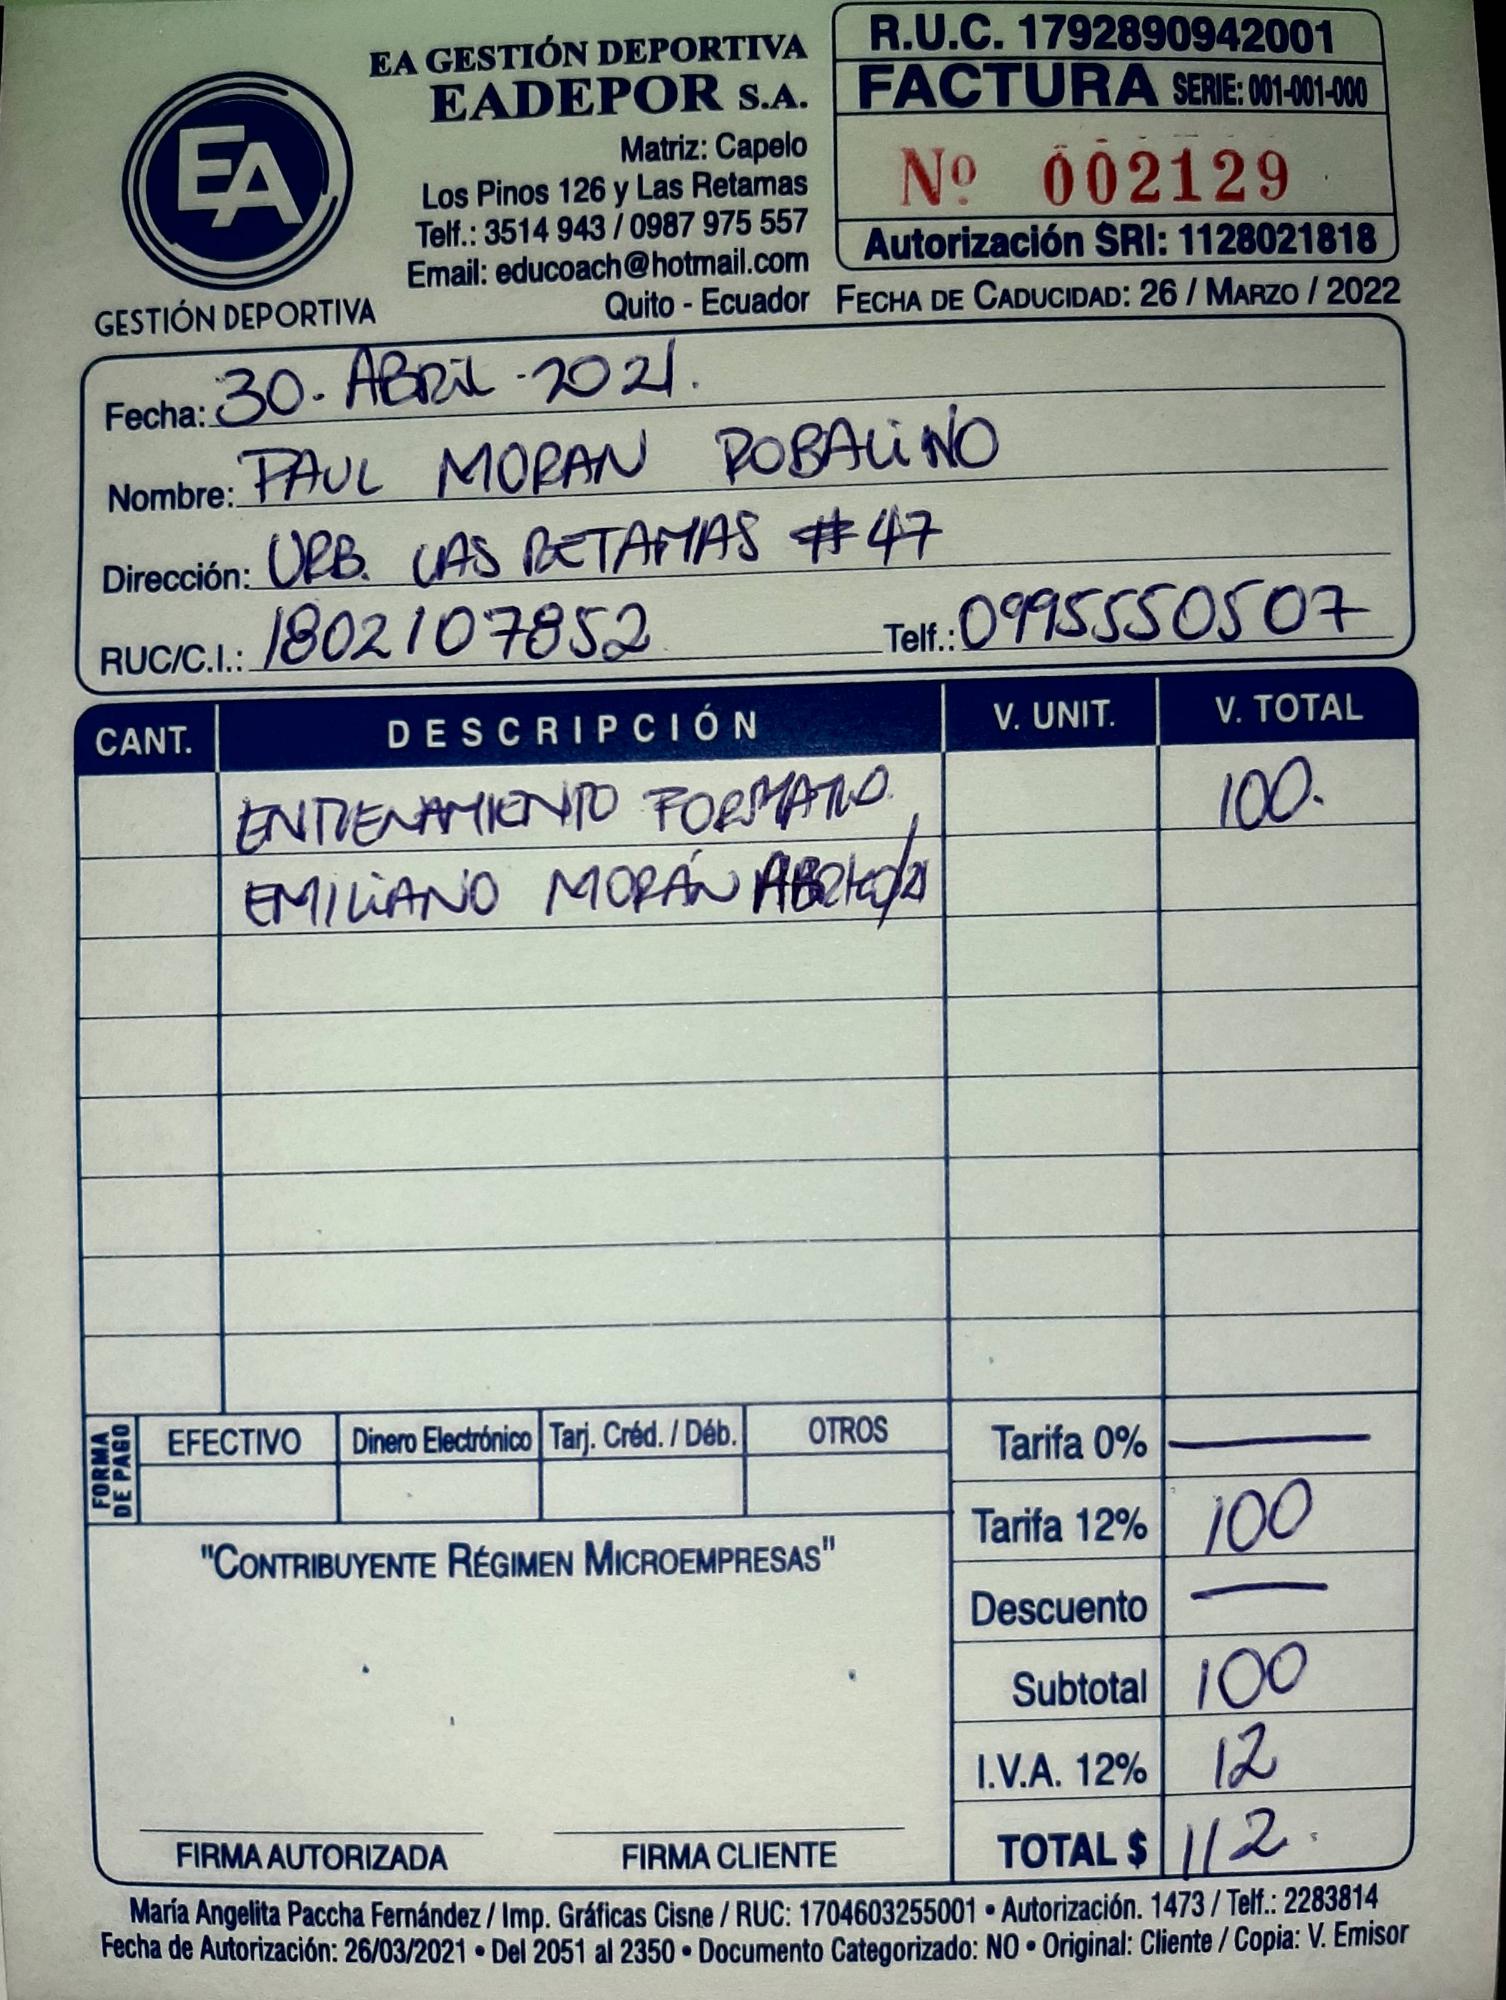 EA
GESTIÓN DEPORTIVA
EA GESTIÓN DEPORTIVA
EADEPOR S.A.
Matriz: Capelo
Los Pinos 126 y Las Retamas
Telf.: 3514 943 / 0987 975 557
Email: educoach@hotmail.com
Quito - Ecuador
R.U.C. 1792890942001
FACTURA SERIE: 001-001-000
Nº 002129
Autorización SRI: 1128021818
FECHA DE CADUCIDAD: 26 / MARZO / 2022
Fecha: 30. ABRIL - 2021.
Nombre: PAUL MORAN ROBALINO
Dirección: URB. LAS RETAMAS #47
RUC/C.I.: 1802107852 Telf.: 0995550507
CANT. DESCRIPCIÓN V. UNIT. V. TOTAL
ENTRENAMIENTO FORMATIVO 100.
EMILIANO MORÁN
FORMA DE PAGO
EFECTIVO Dinero Electrónico Tarj. Créd. / Déb. OTROS
Tarifa 0% —
Tarifa 12% 100
Descuento —
Subtotal 100
I.V.A. 12% 12
TOTAL $ 112.
"CONTRIBUYENTE RÉGIMEN MICROEMPRESAS"
FIRMA AUTORIZADA FIRMA CLIENTE
María Angelita Paccha Fernández / Imp. Gráficas Cisne / RUC: 1704603255001 • Autorización. 1473 / Telf.: 2283814
Fecha de Autorización: 26/03/2021 • Del 2051 al 2350 • Documento Categorizado: NO • Original: Cliente / Copia: V. Emisor